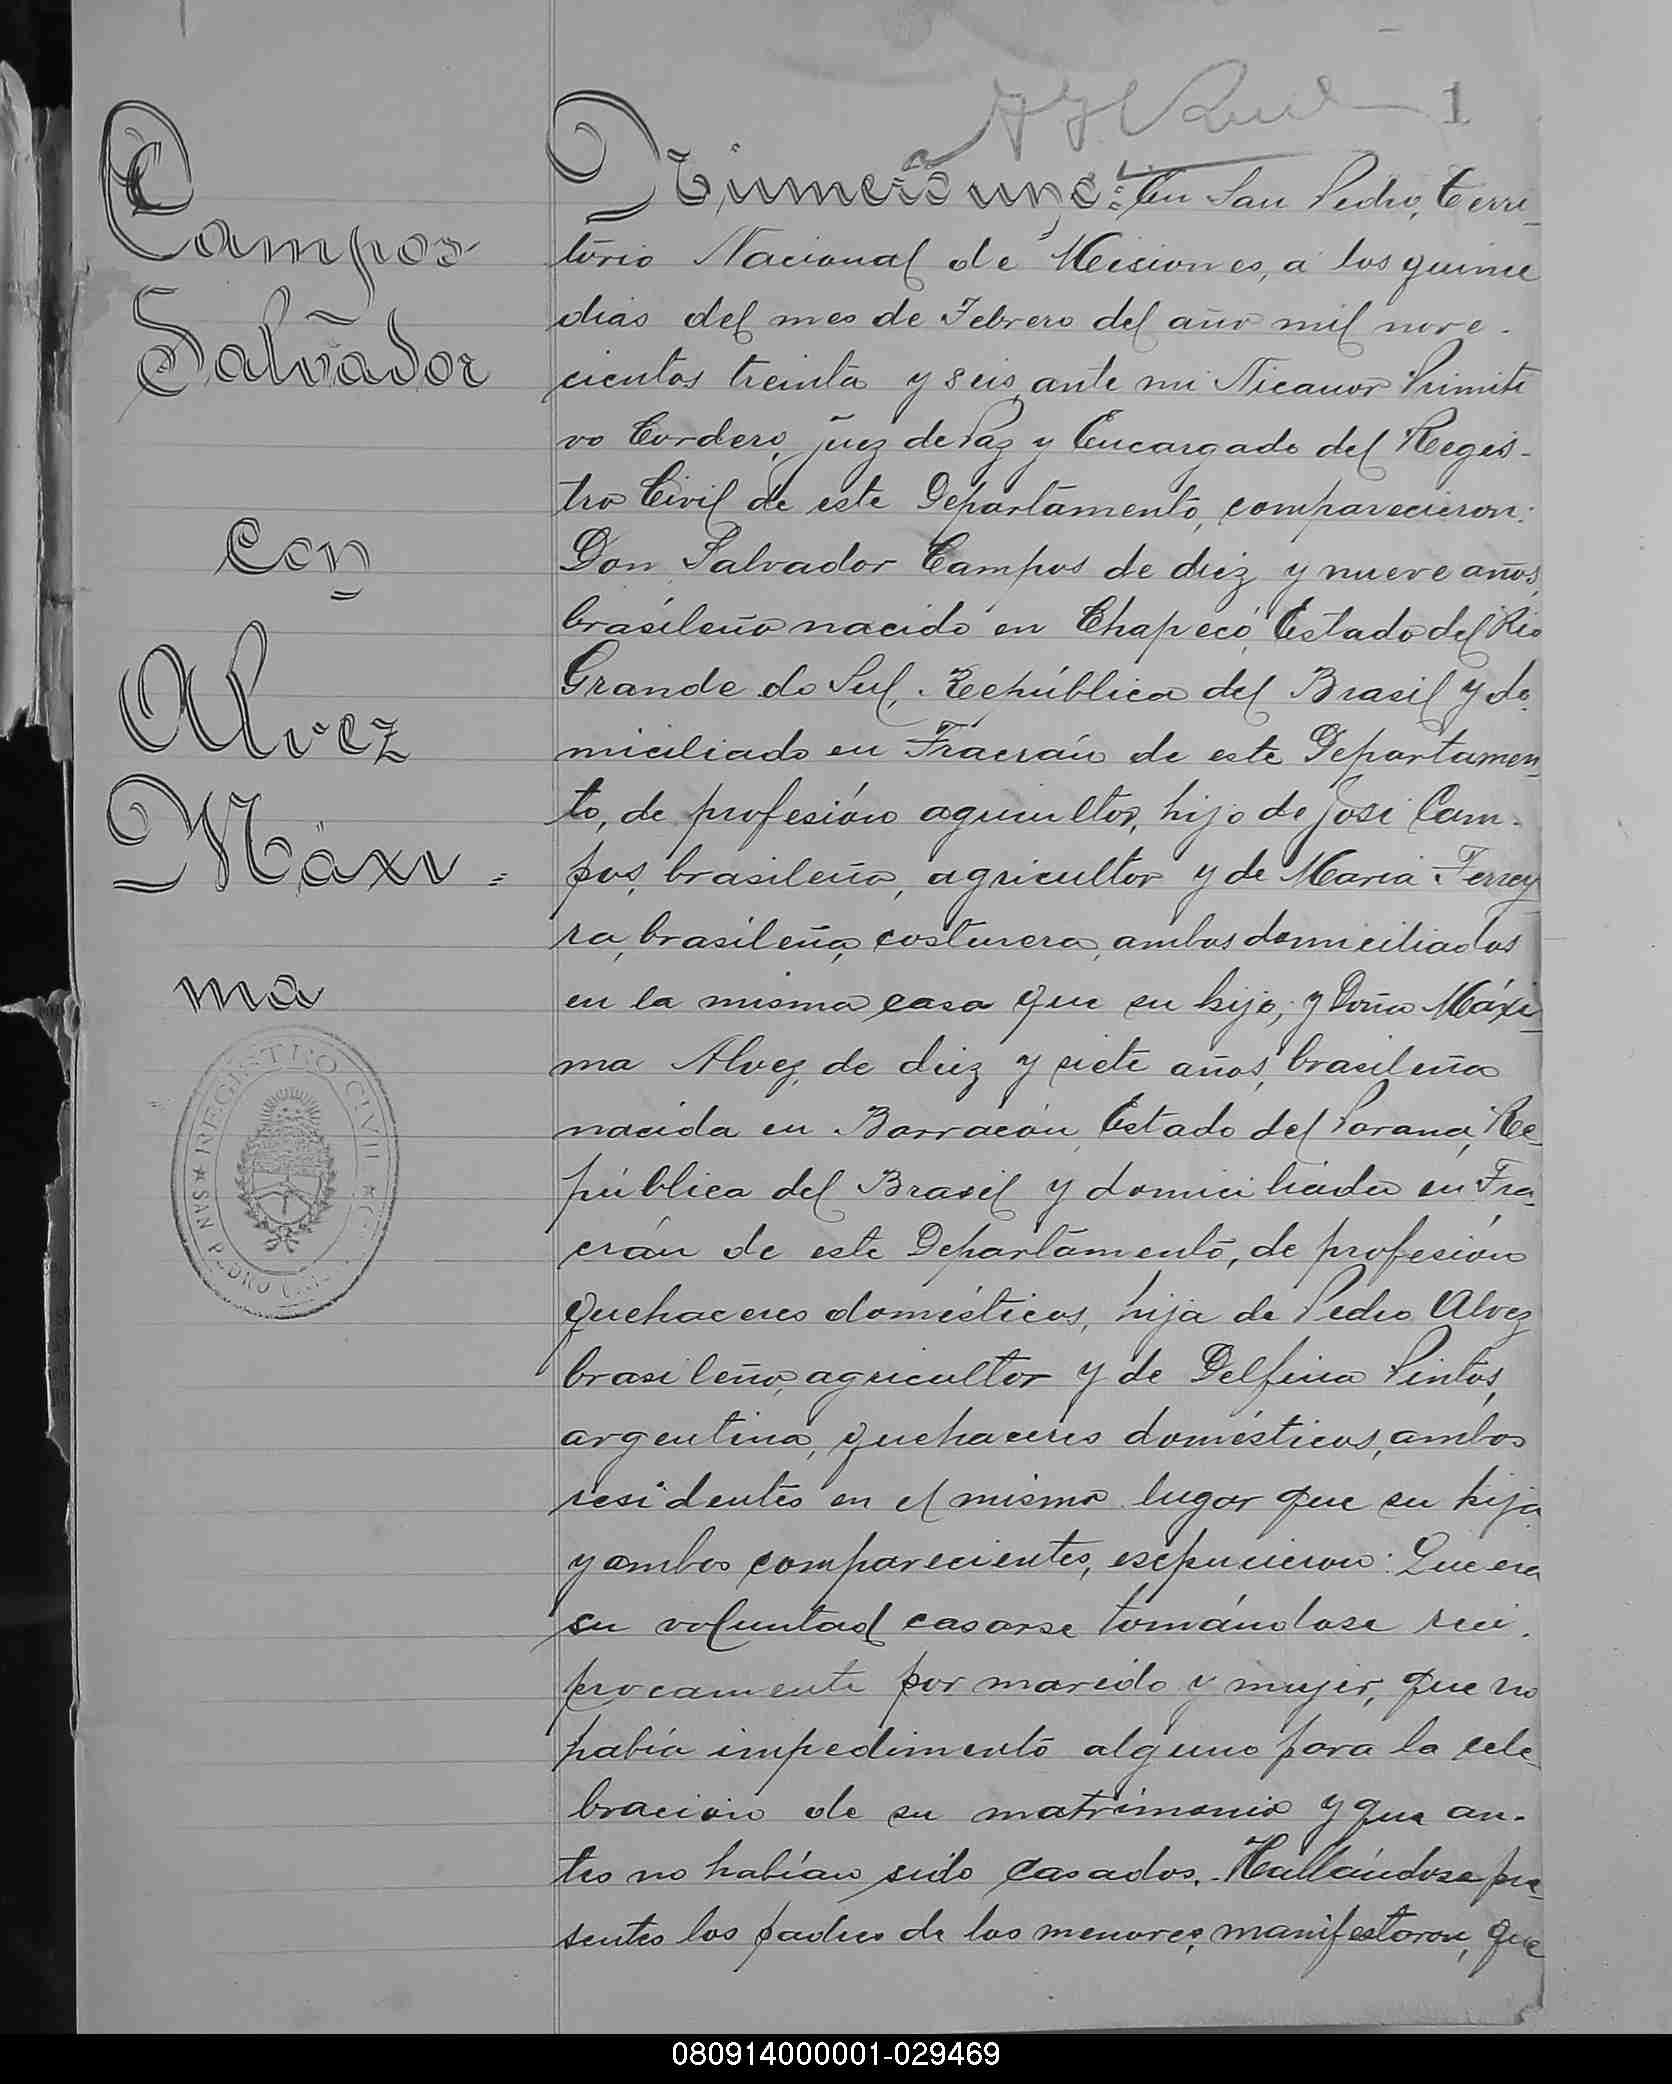 1
Campos
Salvador
con
Alvez
Máxi=
ma
REGISTRO CIVIL
SAN PEDRO
Número uno: En San Pedro, Terri-
torio Nacional de Misiones, a los quince
dias del mes de Febrero del año mil nove-
cientos treinta y seis, ante mi Nicanor Primiti
vo Cordero, juez de Paz y Encargado del Regis-
tro Civil de este Departamento, comparecieron:
Don Salvador Campos de diez y nueve años,
brasileño nacido en Chapecó, Estado del Rio
Grande do Sul, República del Brasil y do-
miciliado en Fracrán de este Departamen-
to, de profesión agricultor, hijo de José Cam-
pos, brasileño, agricultor y de Maria Ferrey
ra, brasileña, costurera, ambos domiciliados
en la misma casa que su hijo; y Doña Máxi-
ma Alvez, de diez y siete años, brasileña
nacida en Barracón, Estado del Parana, Re-
pública del Brasil y domiciliada en Fra-
crán de este Departamento, de profesión
quehaceres domésticos, hija de Pedro Alvez
brasileño, agricultor y de Delfina Pintos,
argentina, quehaceres domésticos, ambos
residentes en el mismo lugar que su hija
y ambos comparecientes, expusieron: Que era
su voluntad casarse tomándose reci-
procamente por marido y mujer, que no
había impedimento alguno para la cele-
bración de su matrimonio y que an-
tes no habían sido casados. Hallándose pre-
sentes los padres de los menores, manifestaron, que
080914000001-029469